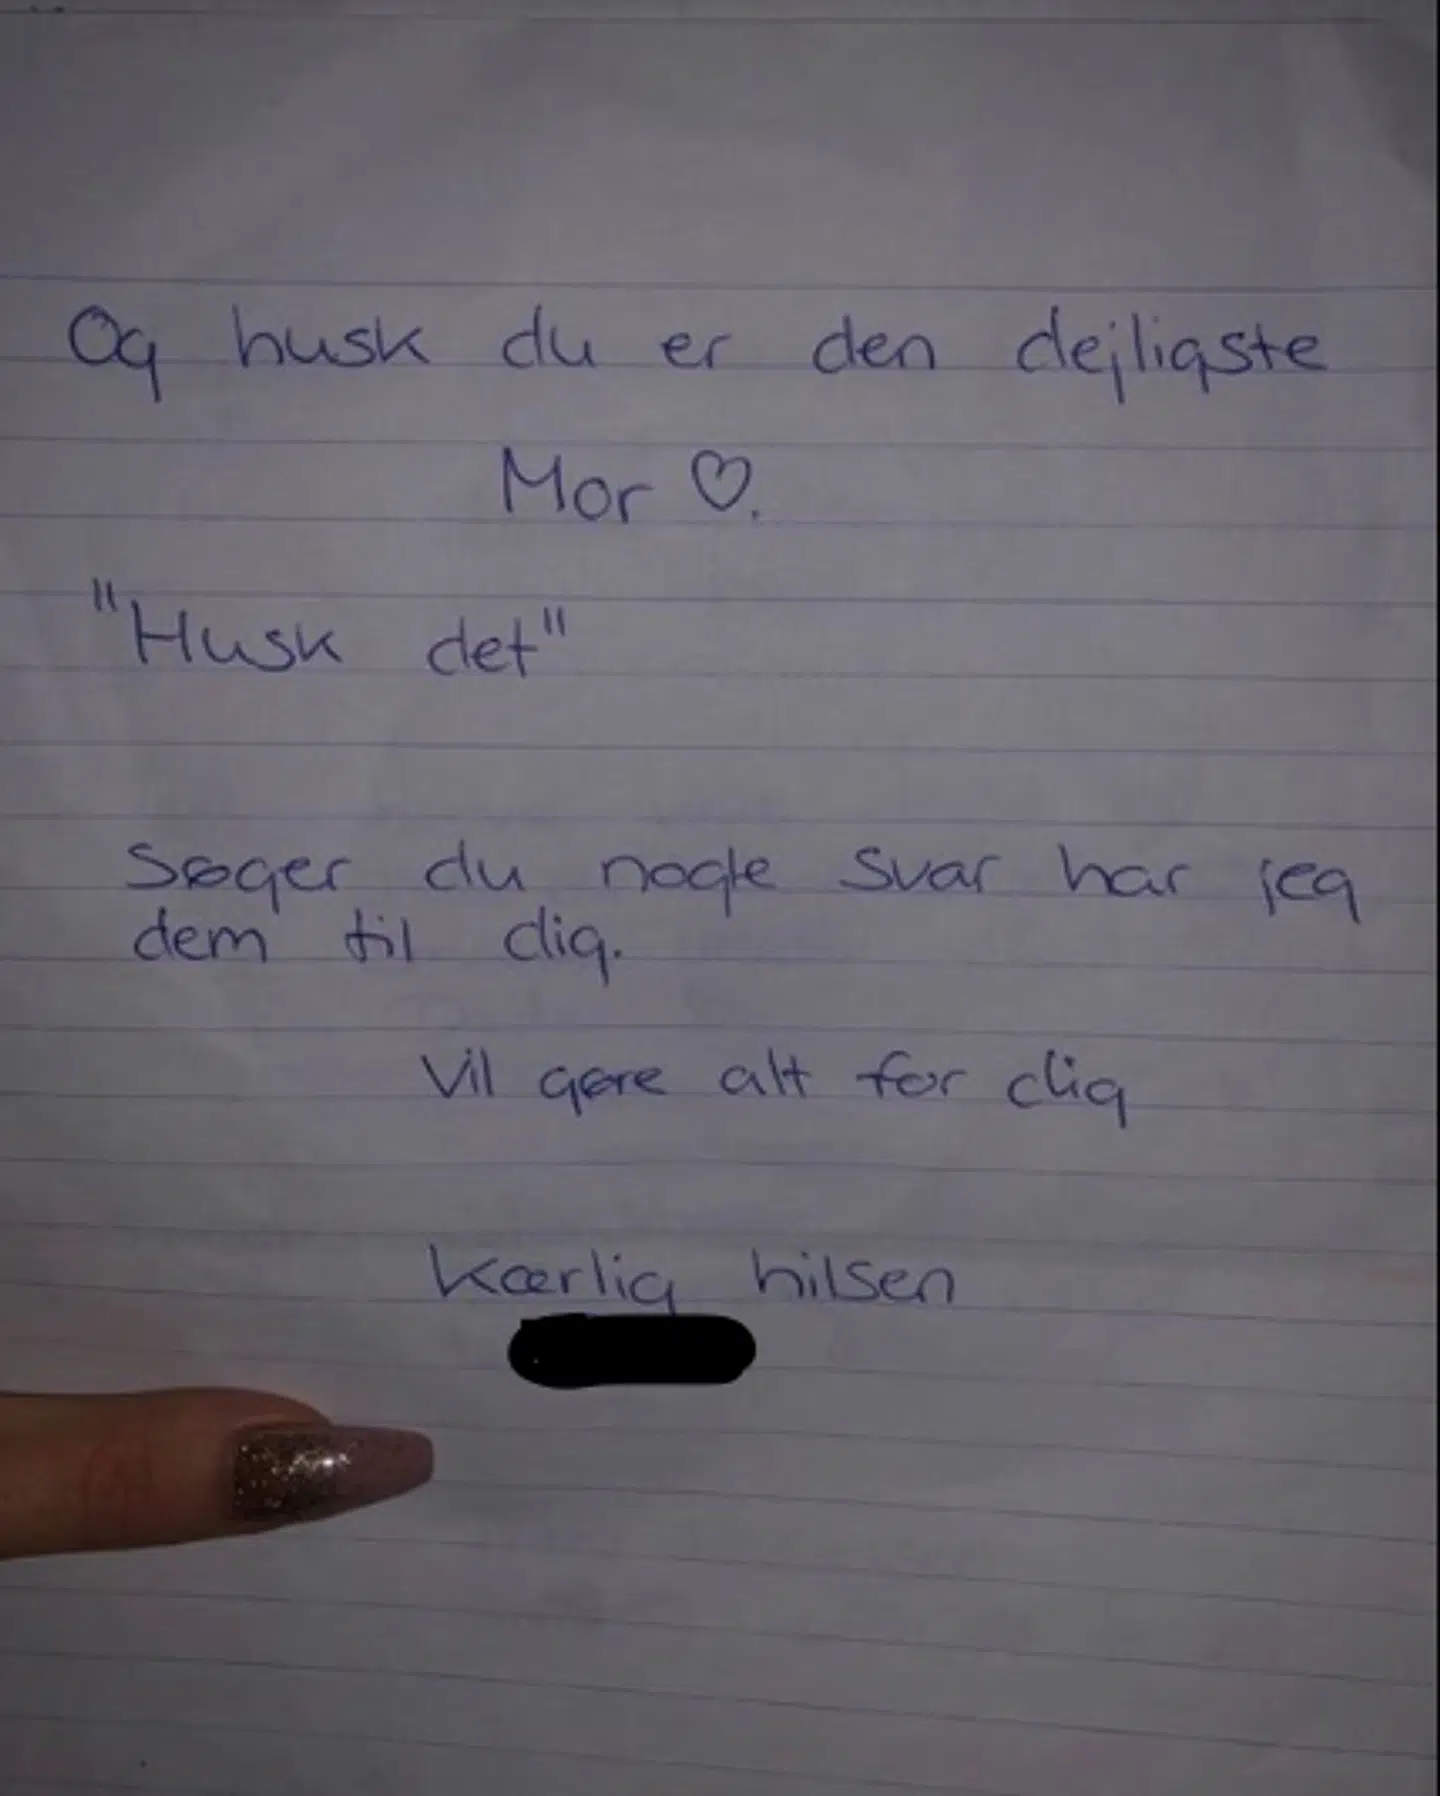 Og husk du er den dejligste
Mor ♡.
"Husk det"
Søger du nogle svar har jeg
dem til dig.
Vil gøre alt for dig
Kærlig hilsen